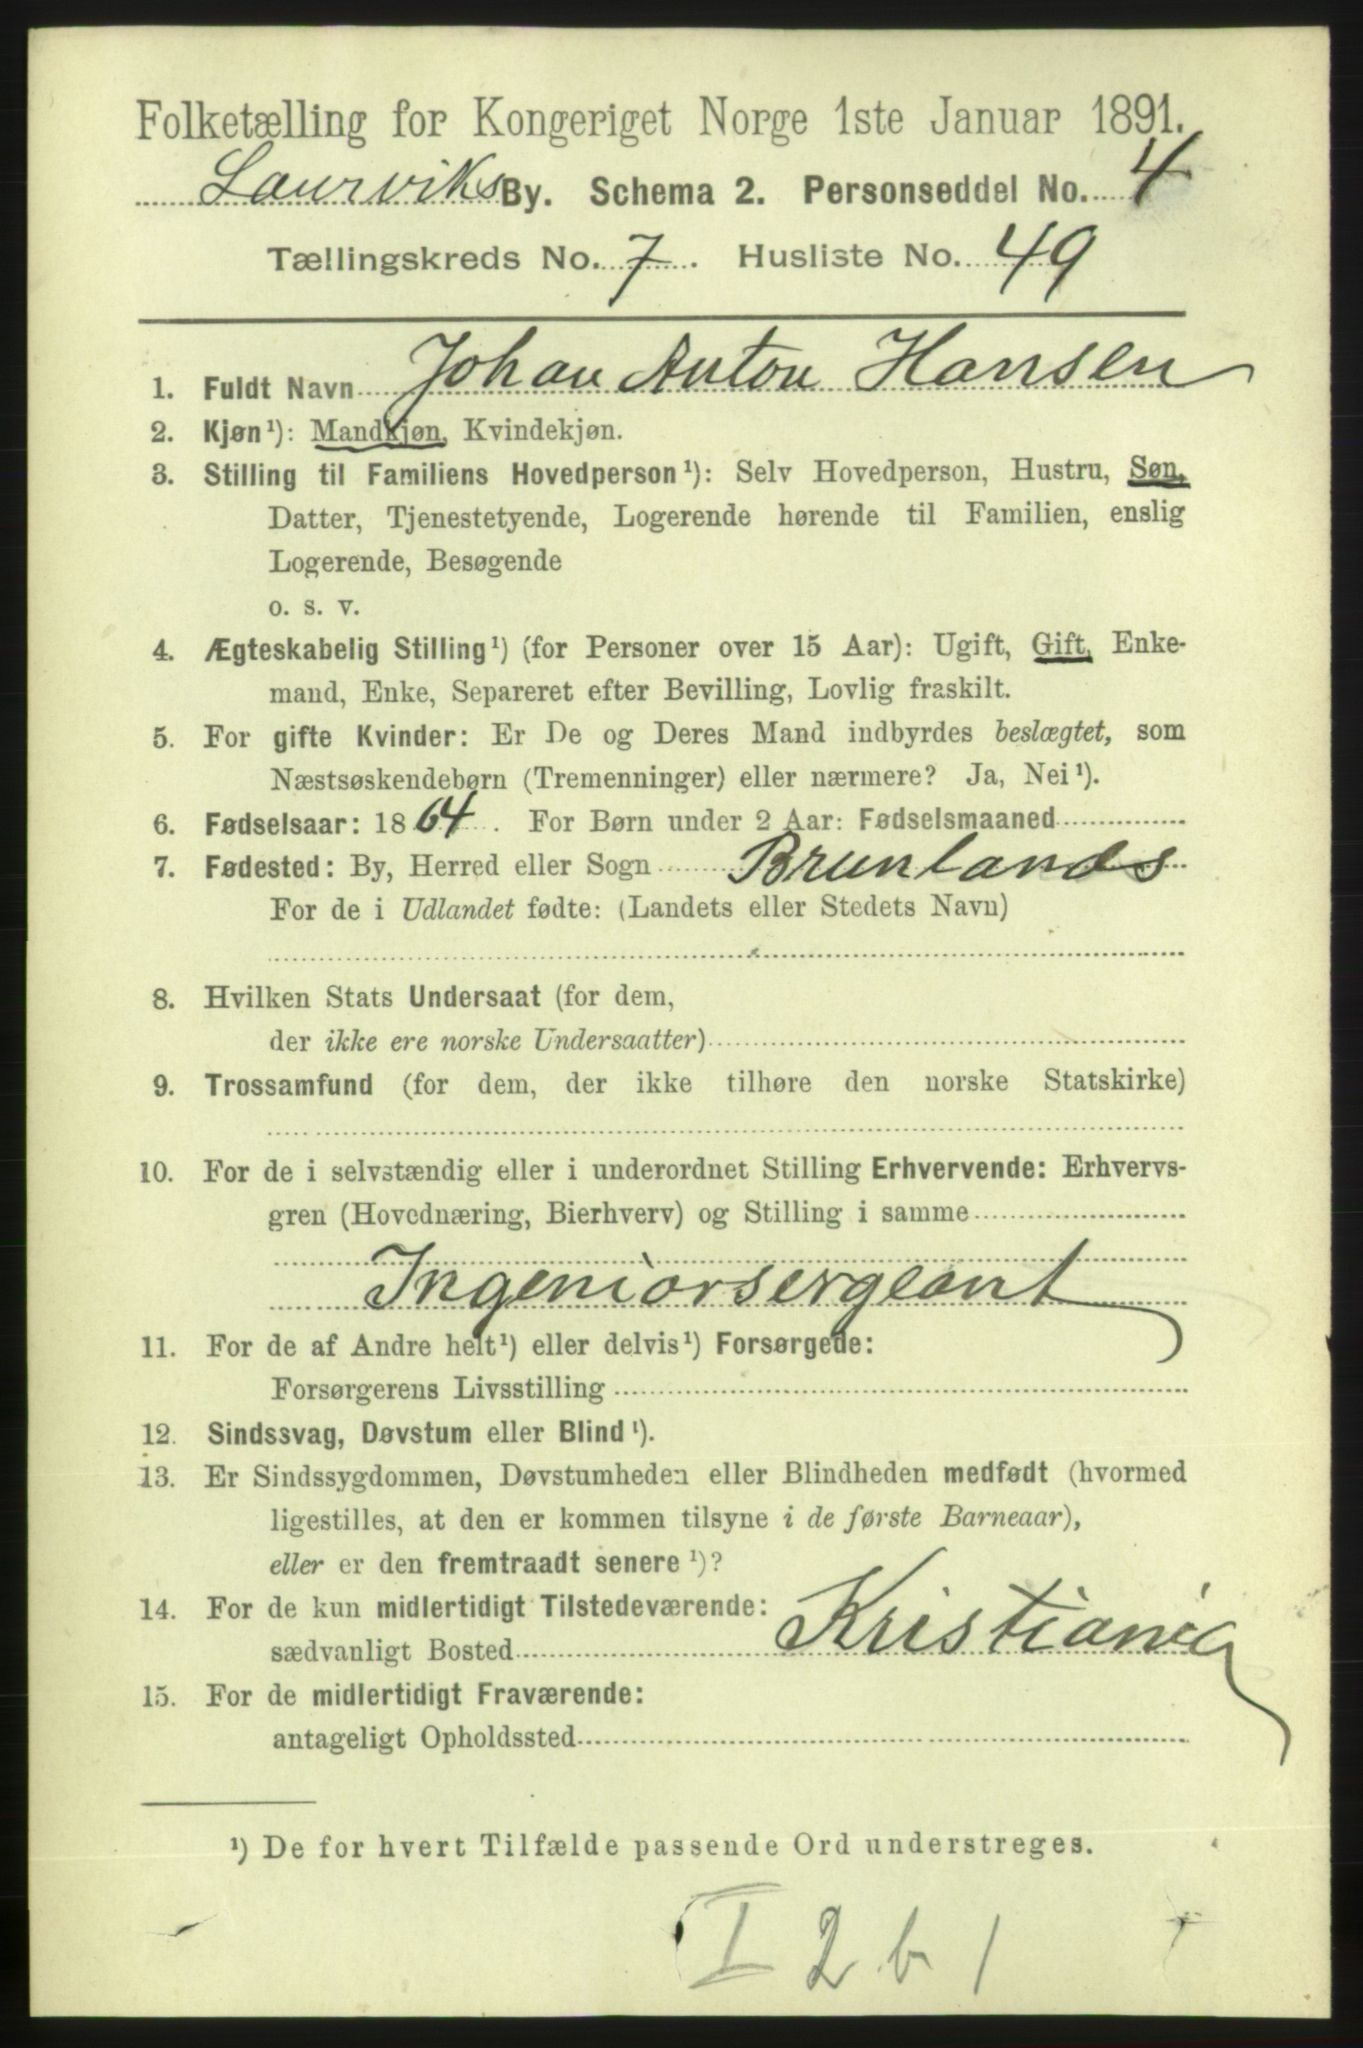 Folketælling for Kongeriget Norge 1ste Januar 1891.
Laurviks By. Schema 2. Personseddel No. 4
Tællingskreds No. 7. Husliste No. 49
1. Fuldt Navn Johan Anton Hansen
2. Kjøn¹): Mandkjøn, Kvindekjøn.
3. Stilling til Familiens Hovedperson¹): Selv Hovedperson, Hustru, Søn,
Datter, Tjenestetyende, Logerende hørende til Familien, enslig
Logerende, Besøgende
o. s. v.
4. Ægteskabelig Stilling¹) (for Personer over 15 Aar): Ugift, Gift, Enke-
mand, Enke, Separeret efter Bevilling, Lovlig fraskilt.
5. For gifte Kvinder: Er De og Deres Mand indbyrdes beslægtet, som
Næstsøskendebørn (Tremenninger) eller nærmere? Ja, Nei¹).
6. Fødselsaar: 1864. For Børn under 2 Aar: Fødselsmaaned
7. Fødested: By, Herred eller Sogn Brunlanes
For de i Udlandet fødte: (Landets eller Stedets Navn)
8. Hvilken Stats Undersaat (for dem,
der ikke ere norske Undersaatter)
9. Trossamfund (for dem, der ikke tilhøre den norske Statskirke)
10. For de i selvstændig eller i underordnet Stilling Erhvervende: Erhvervs-
gren (Hovednæring, Bierhverv) og Stilling i samme
Ingeniørsergeant
11. For de af Andre helt¹) eller delvis¹) Forsørgede:
Forsørgerens Livsstilling
12. Sindssvag, Døvstum eller Blind¹).
13. Er Sindssygdommen, Døvstumheden eller Blindheden medfødt (hvormed
ligestilles, at den er kommen tilsyne i de første Barneaar),
eller er den fremtraadt senere¹)?
14. For de kun midlertidigt Tilstedeværende:
sædvanligt Bosted Kristiania
15. For de midlertidigt Fraværende:
antageligt Opholdssted
¹) De for hvert Tilfælde passende Ord understreges.
I 2 b 1